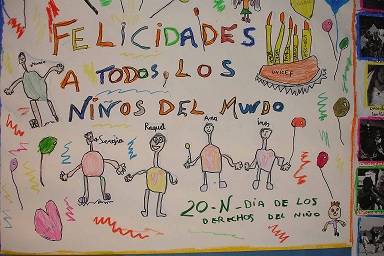 FELICIDADES
UNICEF
A TODOS, LOS
NIÑOS DEL MUNDO
Raquel
Ana
Ines
20-N-DÍA DE LOS
DERECHOS DEL NIÑO